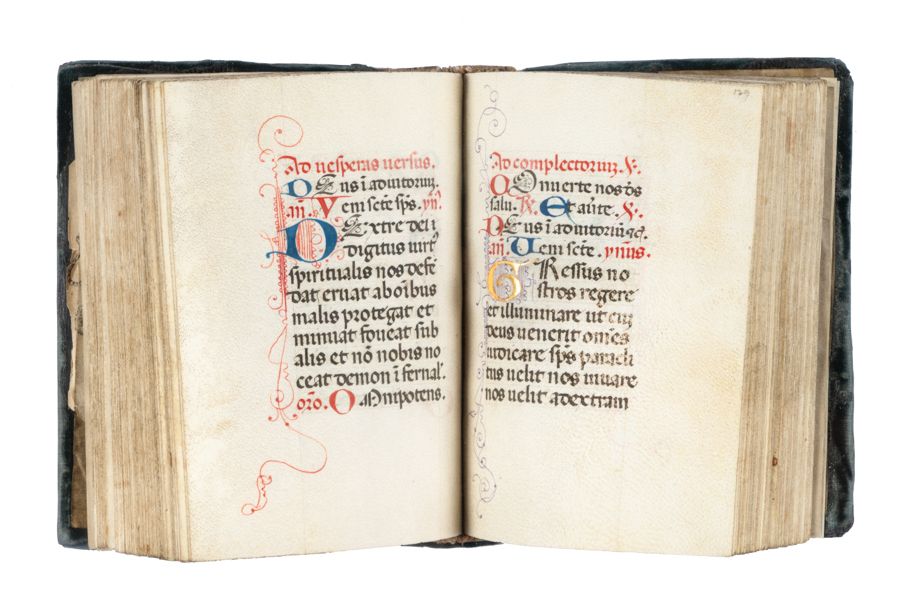 Ad uesperas uersus.
Deus ī adiutorium.
añ. Veni sctē sp̄s. yñ.
Dextre dei
digitus uirt'
spiritualis nos defē
dat eruat ab oībus
malis protegat et
muniat foueat sub
alis et nō nobis no
ceat demon īfernal'.
orō. Omnipotens.
129
Ad complectorium. V.
Conuerte nos ds̄
salu. R. Et auʼte. V.
Deus ī adiutoriū
añ. Ueni sctē. ymnus.
Gressus no
stros regere
et illuminare ut cuʒ
deus uenerit om̄es
iudicare sp̄s paracli
tus uelit nos iuuare
nos uelit ad extram